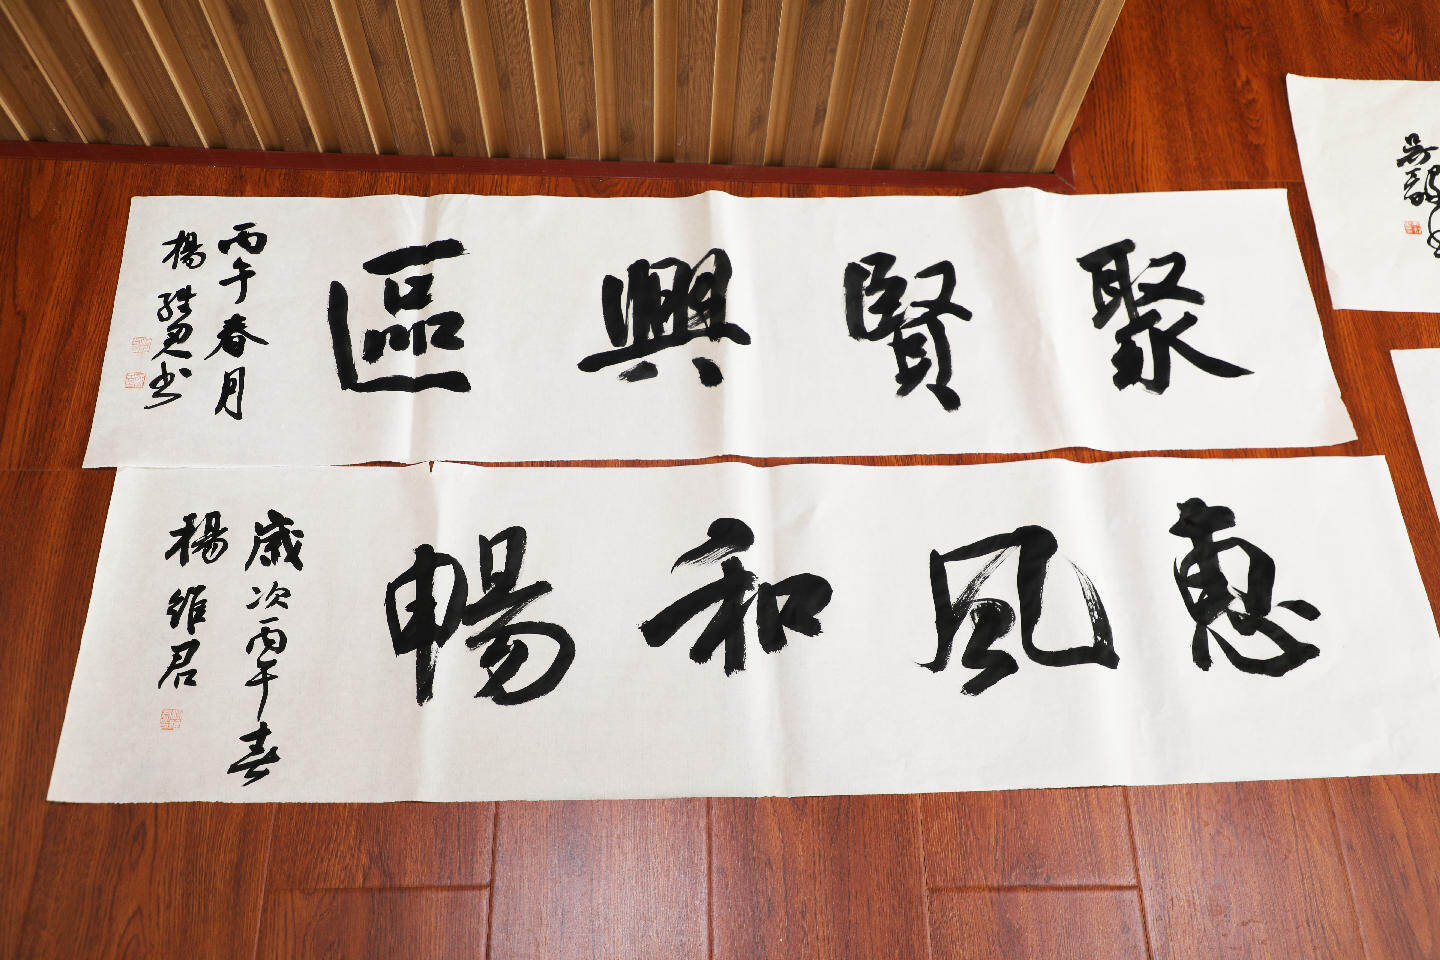 聚賢興區
丙午春月
楊
書
惠風和暢
歲次丙午春
楊維君